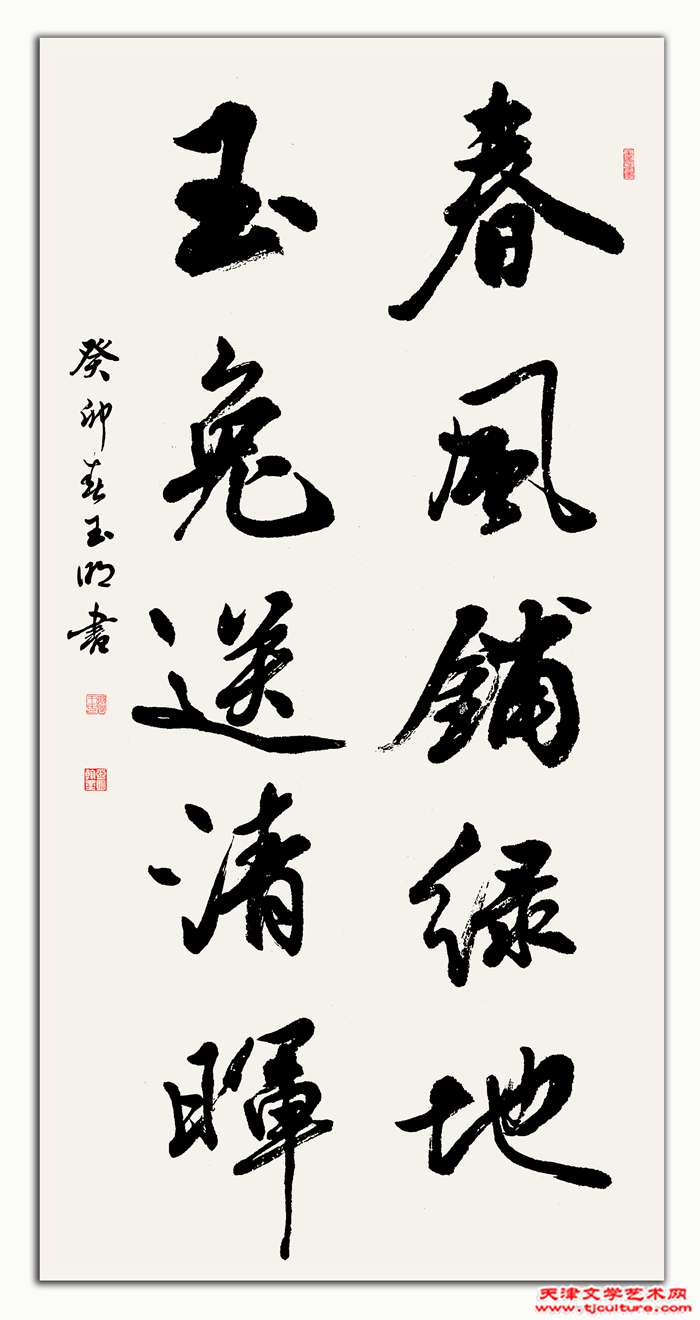 春風鋪綠地
玉兔送清暉
癸卯春玉明書
天津文学艺术网
www.tjculture.com